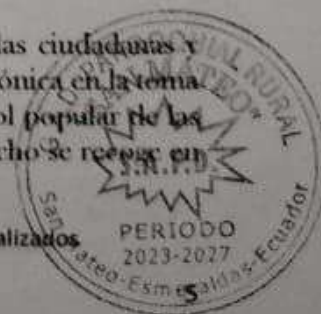 las ciudadanas y
ónica en la toma
ol popular de las
cho se recoge en
alizados
PARROQUIAL RURAL
"SAN MATEO"
PERIODO
2023-2027
San Mateo-Esmeraldas-Ecuador
5